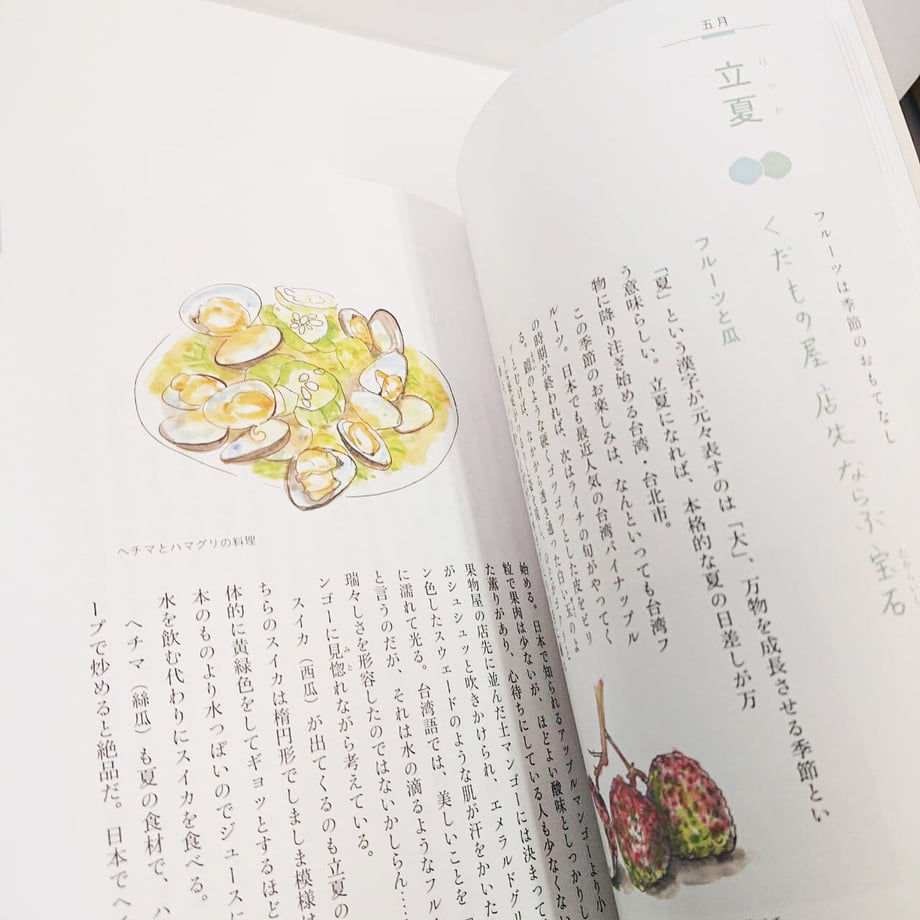 五月
立夏
りっか
フルーツは季節のおもてなし
くだもの屋 店先ならぶ 宝石
フルーツと瓜
「夏」という漢字が元々表すのは「大」、万物を成長させる季節とい
う意味らしい。立夏になれば、本格的な夏の日差しが万
物に降り注ぎ始める台湾・台北市。
この季節のお楽しみは、なんといっても台湾フ
ルーツ。日本でも最近人気の台湾パイナップル
の時期が終われば、次はライチの旬がやってく
始める。日本で知られるアップルマンゴーより小
粒で果肉は少ないが、ほどよい酸味としっかりし
た薫りがあり、心待ちにしている人も少なくない
果物屋の店先に並んだ土マンゴーには決まって
がシュシュッと吹きかけられ、エメラルドグリ
ン色したスウェードのような肌が汗をかいた
に濡れて光る。台湾語では、美しいことを
と言うのだが、それは水の滴るようなフル
瑞々しさを形容したのではないかしらん…
ンゴーに見惚れながら考えている。
スイカ（西瓜）が出てくるのも立夏の
ちらのスイカは楕円形でしましま模様は
体的に黄緑色をしてギョッとするほど
本のものより水っぽいのでジュースに
水を飲む代わりにスイカを食べる。
ヘチマ（絲瓜）も夏の食材で、ハ
ープで炒めると絶品だ。日本でヘ
ヘチマとハマグリの料理